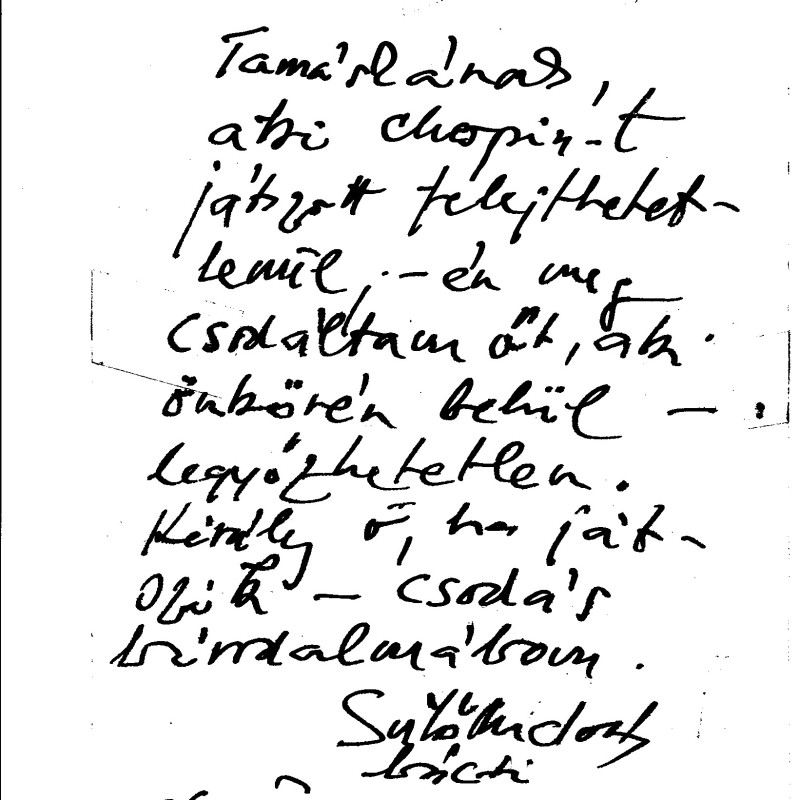 Tamáskának,
aki Chopin-t
játszott felejthetet-
lenül, - én meg
csodáltam őt, aki
önkörén belül —
legyőzhetetlen.
Király ő, ha ját-
szik — csodás
birodalmában.
bácsi